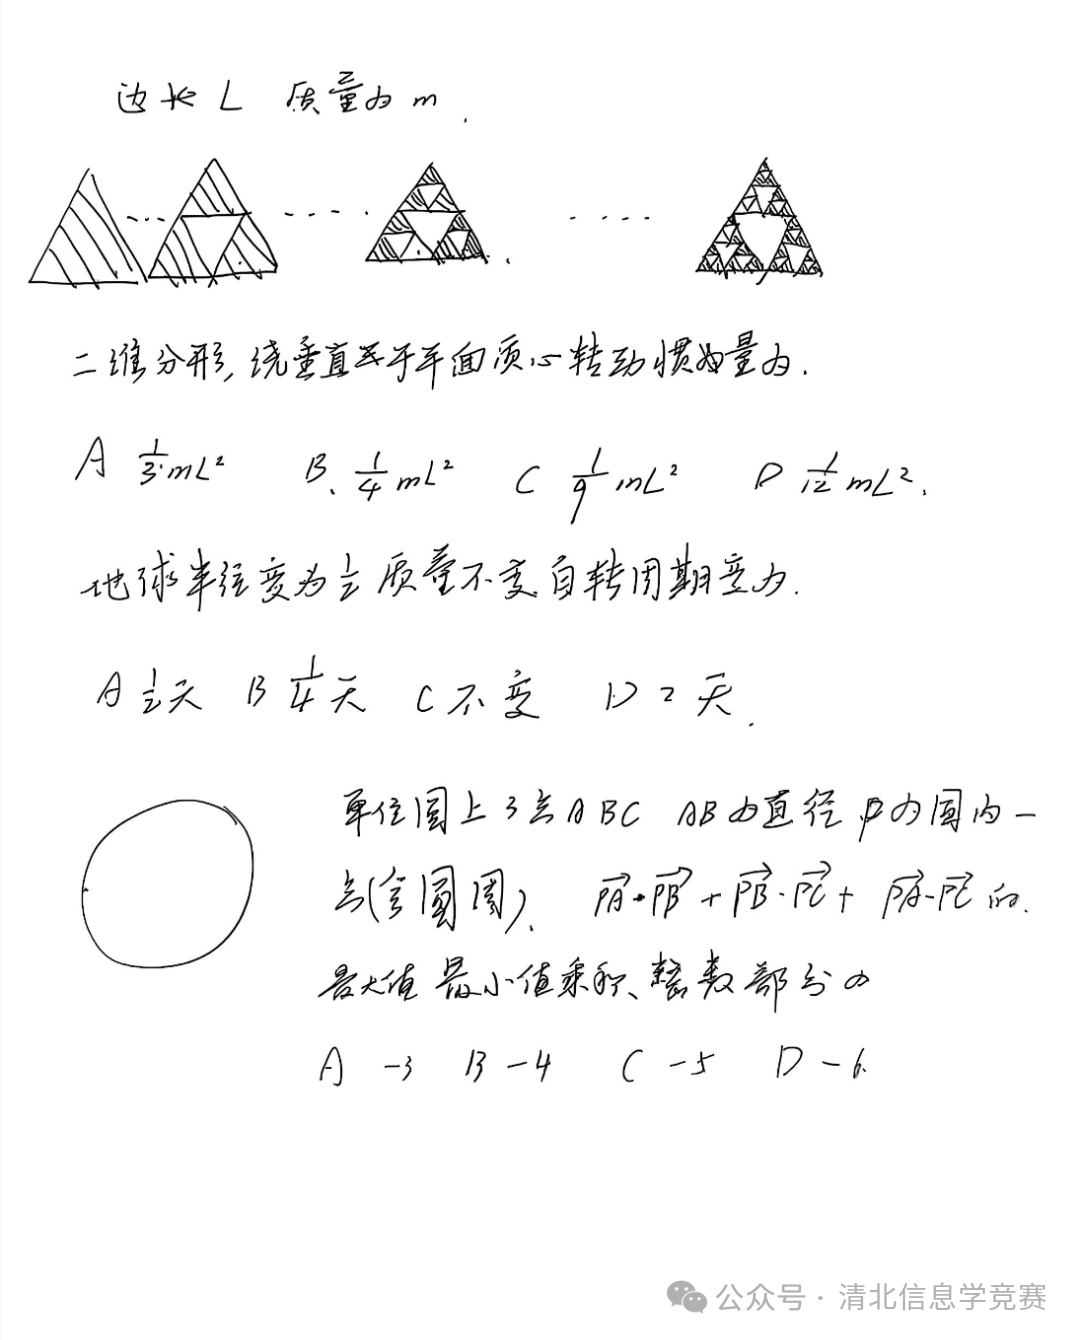 边长 L 质量为 m.
二维分形,绕垂直于平面质心转动惯量为.
A 1/3 mL² B. 1/4 mL² C 1/9 mL² D 1/12 mL².
地球半径变为 1/2 质量不变自转周期变为.
A 1/2天 B 1/4天 C 不变 D 2天.
单位圆上3点ABC AB为直径 P为圆内一
点(含圆周). PA·PB + PB·PC + PA·PC 的.
最大值最小值乘积、整数部分为
A -3 B -4 C -5 D -6.
公众号·清北信息学竞赛